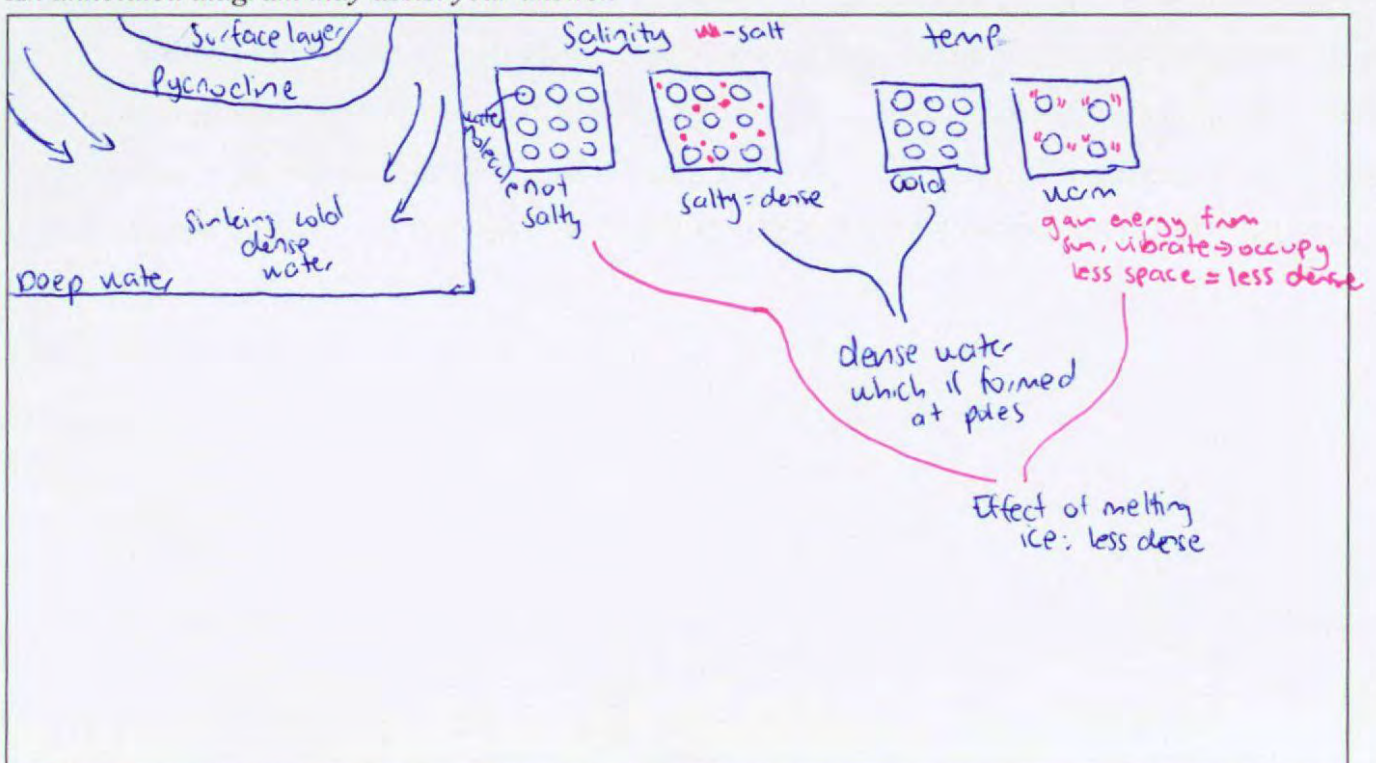 Surface layer
Pycnocline
Sinking cold
dense
water
Deep water
Salinity
-salt
water
molecule
not
salty
salty = dense
temp
cold
warm
gain energy from
sun, vibrate → occupy
less space = less dense
dense water
which is formed
at poles
Effect of melting
ice: less dense